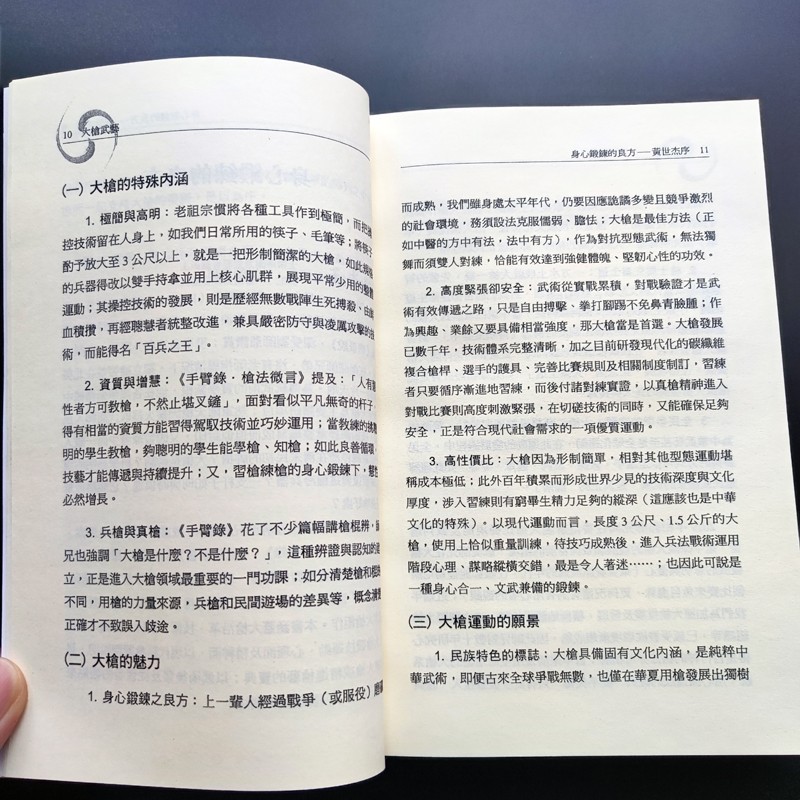 10 大槍武藝
(一) 大槍的特殊內涵
1. 極簡與高明：老祖宗慣將各種工具作到極簡，而把
控技術留在人身上，如我們日常所用的筷子、毛筆等；將筷子
酌予放大至3公尺以上，就是一把形制簡潔的大槍，如此
的兵器得改以雙手持拿並用上核心肌群，展現平常少用的
運動；其操控技術的發展，則是歷經無數戰陣生死搏殺、
血積攢，再經聰慧者統整改進，兼具嚴密防守與凌厲攻擊的
術，而能得名「百兵之王」。
2. 資質與增慧：《手臂錄·槍法微言》提及：「人有
性者方可教槍，不然止堪叉鏟」，面對看似平凡無奇的杆子，
得有相當的資質方能習得駕馭技術並巧妙運用；當教練的
明的學生教槍，夠聰明的學生能學槍、知槍；如此良善循環，
技藝才能傳遞與持續提升；又，習槍練槍的身心鍛鍊下，
必然增長。
3. 兵槍與真槍：《手臂錄》花了不少篇幅講槍棍辨，
兄也強調「大槍是什麼？不是什麼？」，這種辨證與認知的
立，正是進入大槍領域最重要的一門功課；如分清楚槍和棍
不同，用槍的力量來源，兵槍和民間遊場的差異等，概念清
正確才不致誤入歧途。
(二) 大槍的魅力
1. 身心鍛鍊之良方：上一輩人經過戰爭（或服役）
身心鍛鍊的良方──黃世杰序 11
而成熟，我們雖身處太平年代，仍要因應詭譎多變且競爭激烈
的社會環境，務須設法克服懦弱、膽怯；大槍是最佳方法（正
如中醫的方中有法，法中有方），作為對抗型態武術，無法獨
舞而須雙人對練，恰能有效達到強健體魄、堅韌心性的功效。
2. 高度緊張卻安全：武術從實戰累積，對戰驗證才是武
術有效傳遞之路，只是自由搏擊、拳打腳踢不免鼻青臉腫；作
為興趣、業餘又要具備相當強度，那大槍當是首選。大槍發展
已數千年，技術體系完整清晰，加之目前研發現代化的碳纖維
複合槍桿、選手的護具、完善比賽規則及相關制度制訂，習練
者只要循序漸進地習練，而後付諸對練實證，以真槍精神進入
對戰比賽則高度刺激緊張，在切磋技術的同時，又能確保足夠
安全，正是符合現代社會需求的一項優質運動。
3. 高性價比：大槍因為形制簡單，相對其他型態運動堪
稱成本極低；此外百年積累而形成世界少見的技術深度與文化
厚度，涉入習練則有窮畢生精力足夠的縱深（這應該也是中華
文化的特殊）。以現代運動而言，長度3公尺、1.5公斤的大
槍，使用上恰似重量訓練，待技巧成熟後，進入兵法戰術運用
階段心理、謀略縱橫交錯，最是令人著迷……；也因此可說是
一種身心合一、文武兼備的鍛鍊。
(三) 大槍運動的願景
1. 民族特色的標誌：大槍具備固有文化內涵，是純粹中
華武術，即便古來全球爭戰無數，也僅在華夏用槍發展出獨樹